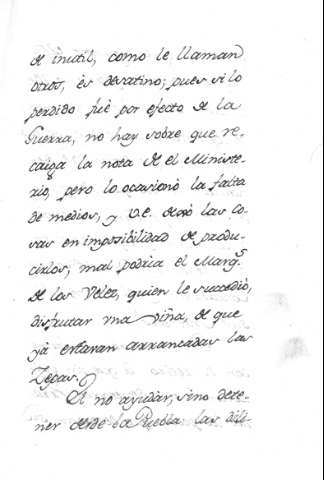 de inutil, como le llaman
otros, es desatino; pues si lo
perdido fué por efecto de la
Guerra, no hay sobre que re-
caiga la nota de el Ministe-
rio, pero lo ocasionó la falta
de medios, y V.E. dexó las co-
sas en imposibilidad de produ-
cirlos; mal podria el Marq.s
de los Velez, quien le succedió,
disfrutar una viña, de que
yá estavan arrancadas las
Zepas.
El no ayudar, sino dete-
ner desde la Puebla las dili-